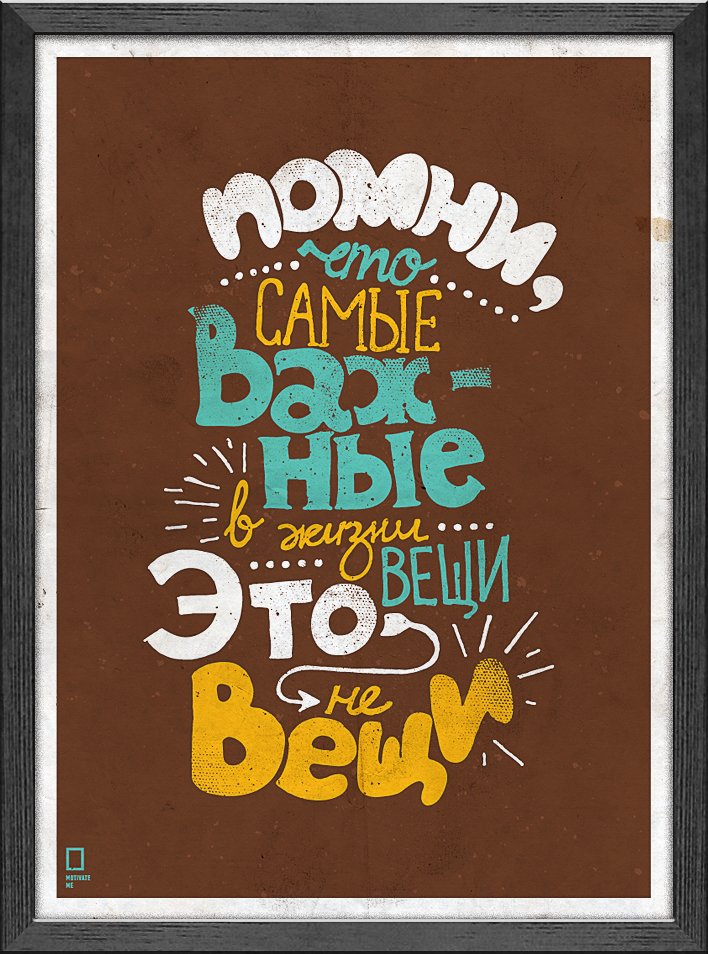 помни,
что
САМЫЕ
Важ-
ные
в жизни
ВЕЩИ
Это
не
Вещи
MOTIVATE
ME